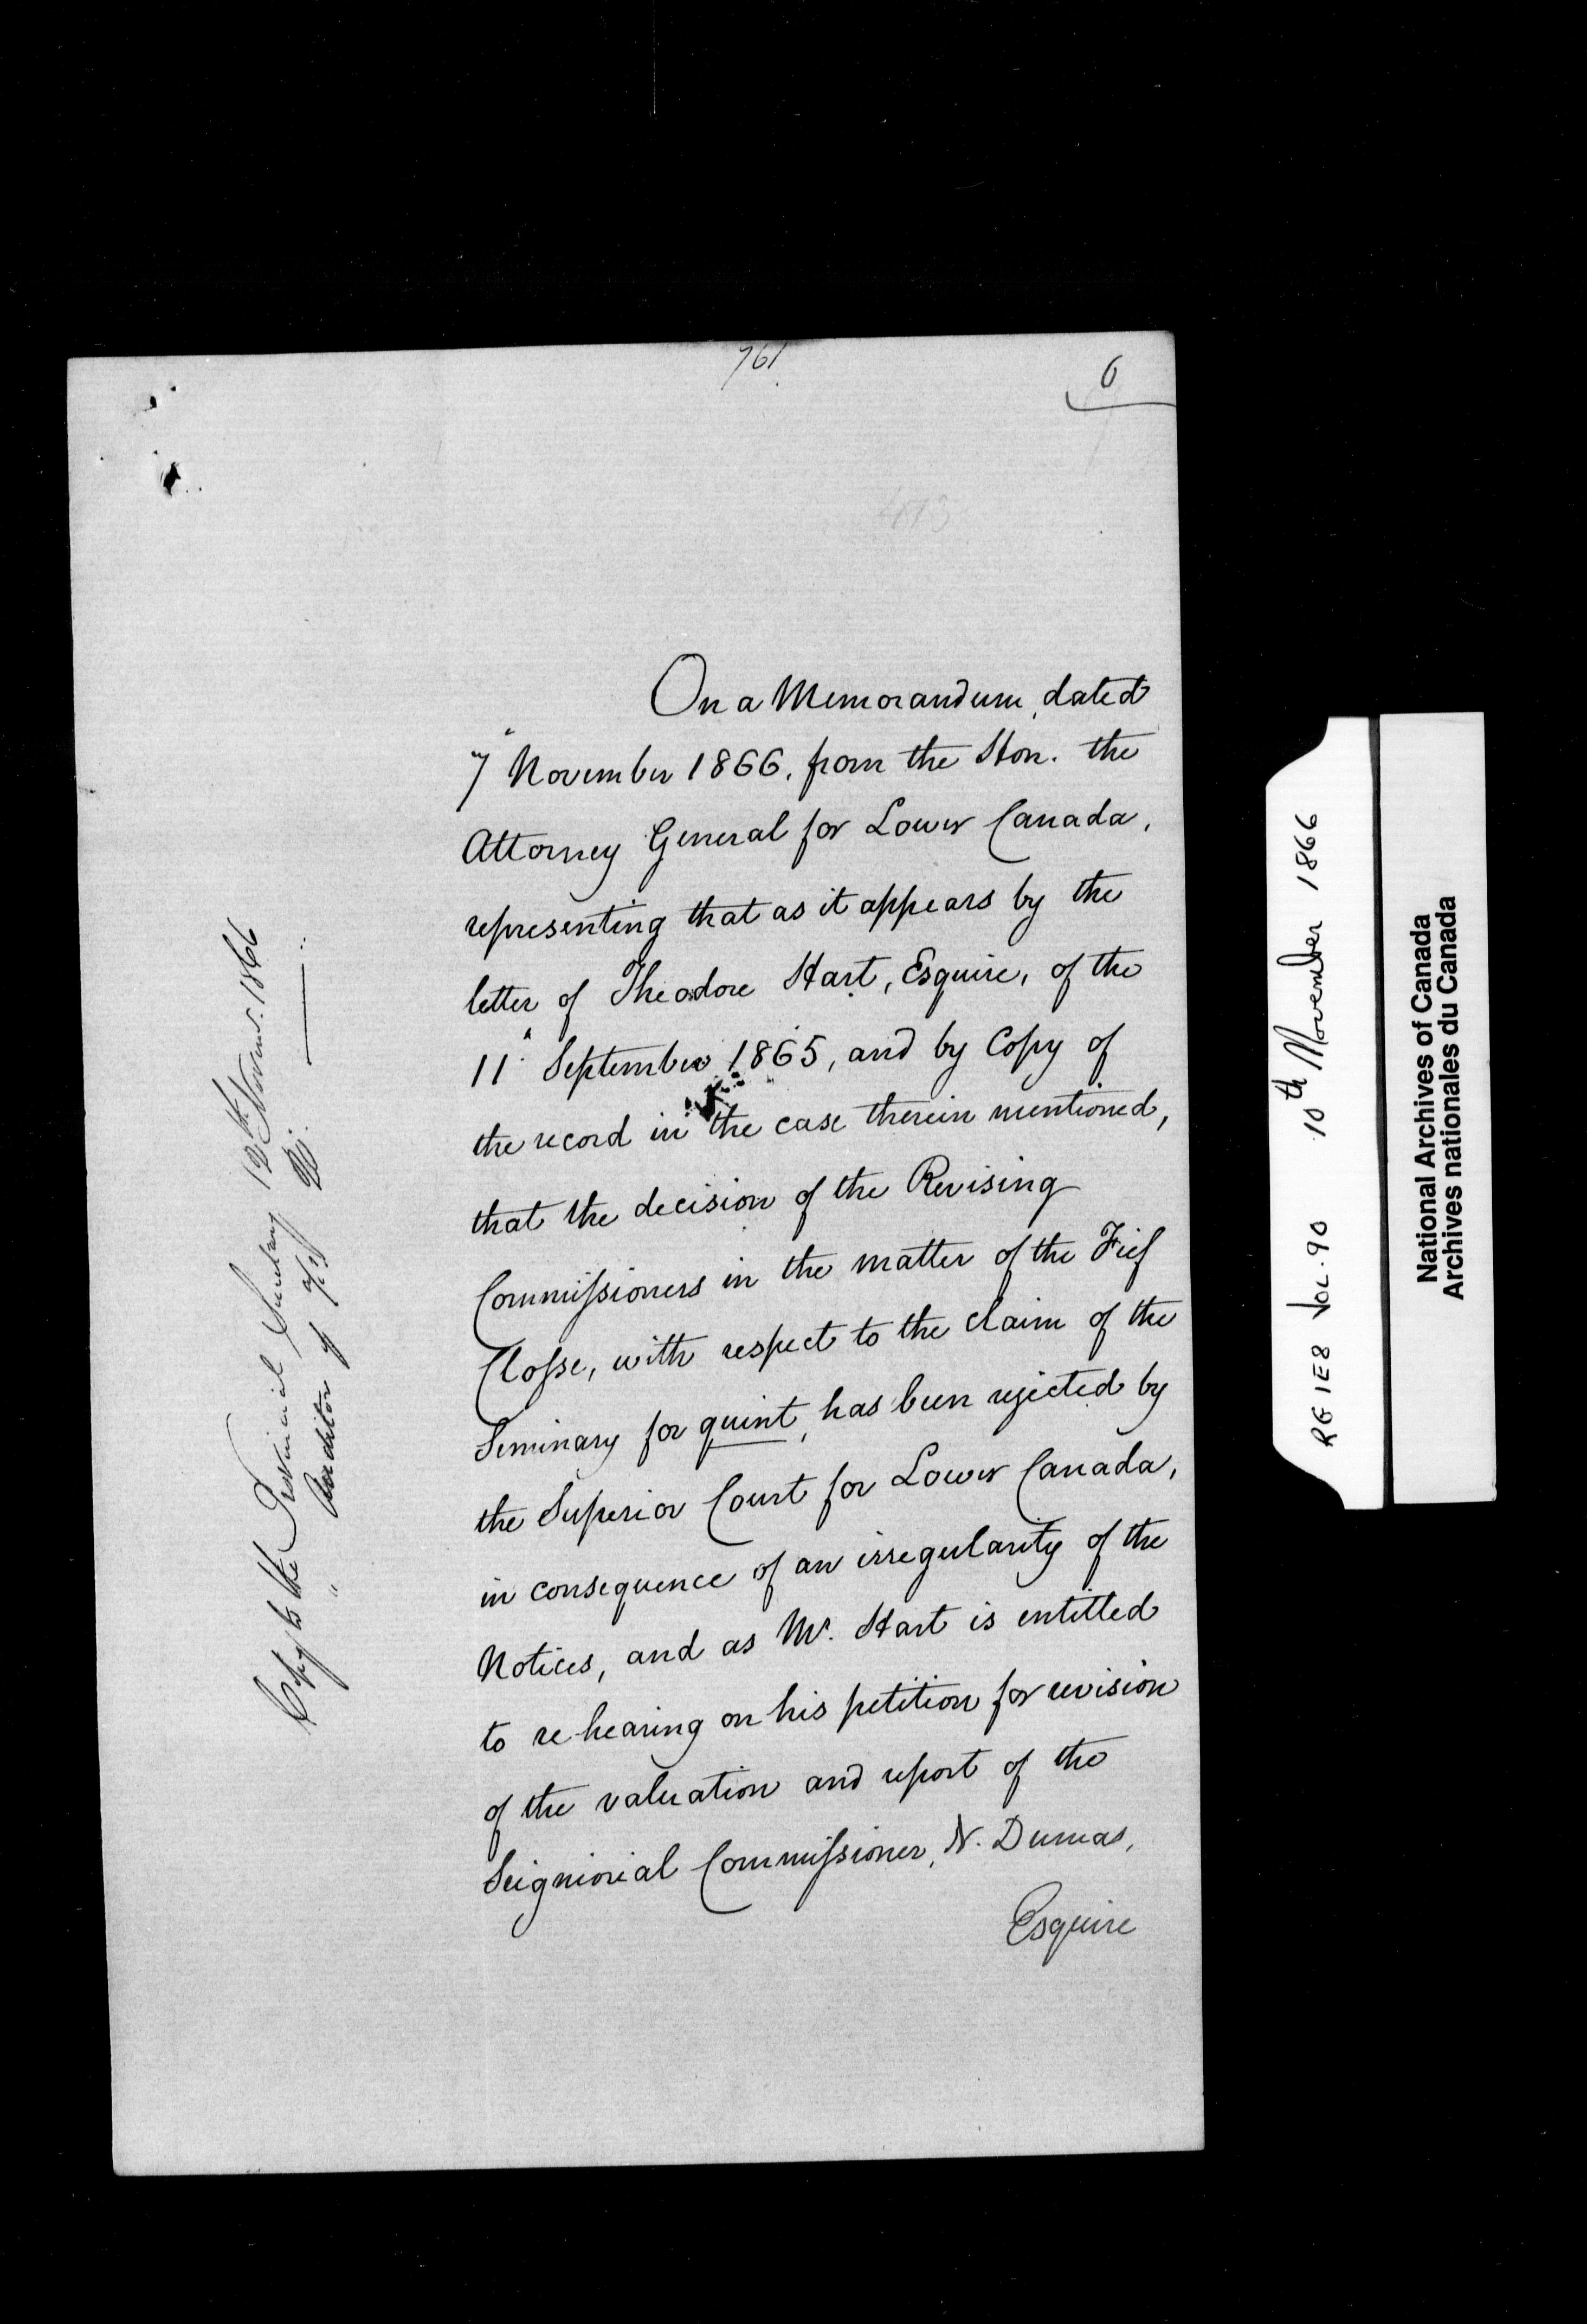 761
6
413
On a Memorandum, dated
7" November 1866, from the Hon. the
Attorney General for Lower Canada,
representing that as it appears by the
letter of Theodore Hart, Esquire, of the
11" September 1865, and by Copy of
the record in the case therein mentioned,
that the decision of the Revising
Commissioners in the matter of the Fief
Closse, with respect to the claim of the
Seminary for quint, has been rejected by
the Superior Court for Lower Canada,
in consequence of an irregularity of the
Notices, and as Mr. Hart is entitled
to re-hearing on his petition for revision
of the valuation and report of the
Seigniorial Commissioner, N. Dumas,
Esquire
Copy to the Provincial Secretary 12th Novem. 1866
" Auditor
RG 1 E8 VOL. 90 10th November 1866
National Archives of Canada
Archives nationales du Canada